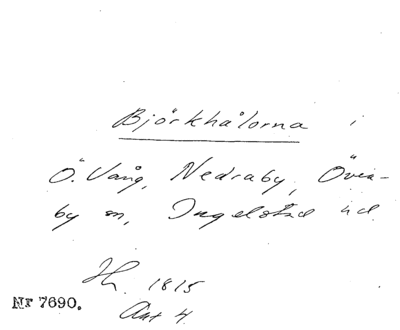 Björkhålorna i
Ö. Vång, Nedraby, Övra-
by sn, Ingelstad hd
1815
Akt 4
Nr 7690.